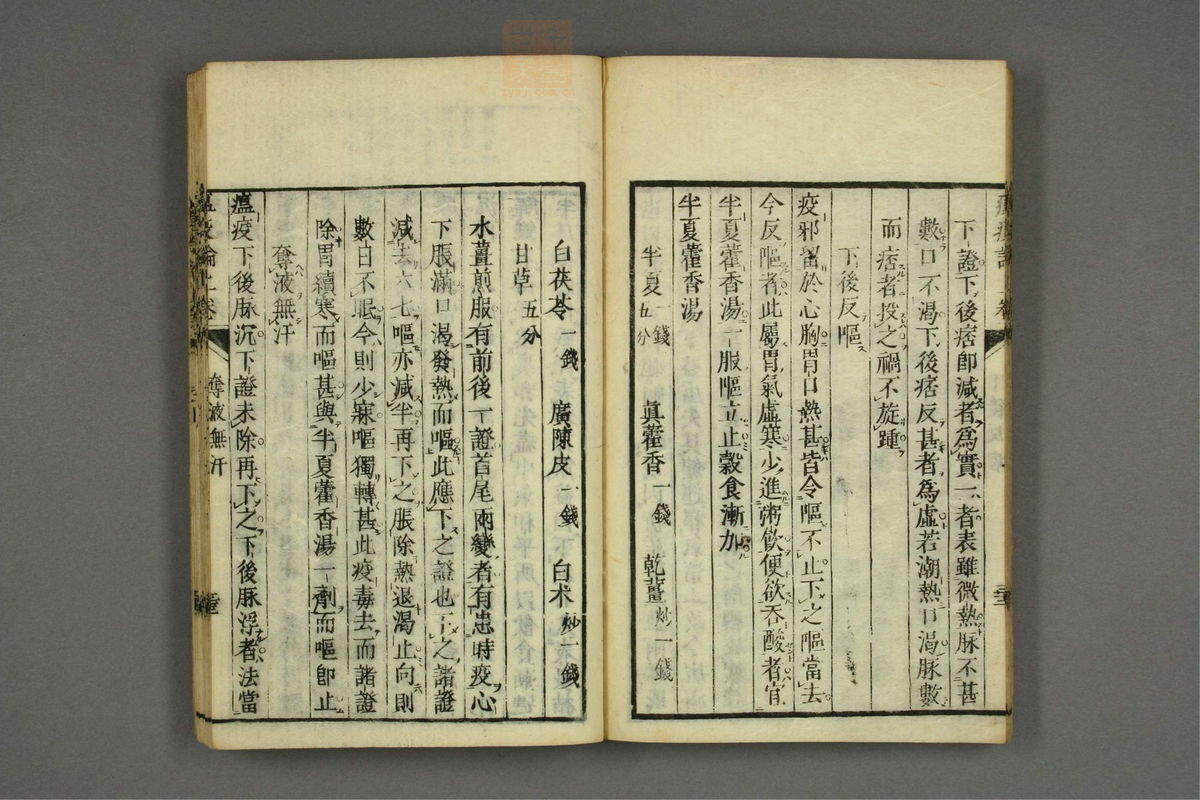 下證下後痞即減者爲實一者表雖微熱脉不甚
數口不渴下後痞反甚者爲虛若潮熱口渴脉數
而痞者投之禍不旋踵
下後反嘔
疫邪留於心胸胃口熱甚皆令嘔不止下之嘔當去
今反嘔者此屬胃氣虛寒少進粥飲便欲吞酸者宜
半夏藿香湯一服嘔立止穀食漸加
半夏藿香湯
半夏一錢五分 眞藿香一錢 乾薑炒一錢
白茯苓一錢 廣陳皮一錢 白术炒一錢
甘草五分
水薑煎服有前後一證首尾兩變者有患時疫心
下脹滿口渴發熱而嘔此應下之證也下之諸證
減去六七嘔亦減半再下之脹除熱退渴止向則
數日不眠今則少寐嘔獨轉甚此疫毒去而諸證
除胃續寒而嘔甚與半夏藿香湯一劑而嘔即止
奪液無汗
瘟疫下後脉沉下證未除再下之下後脉浮者法當
瘟疫論上卷 奪液無汗